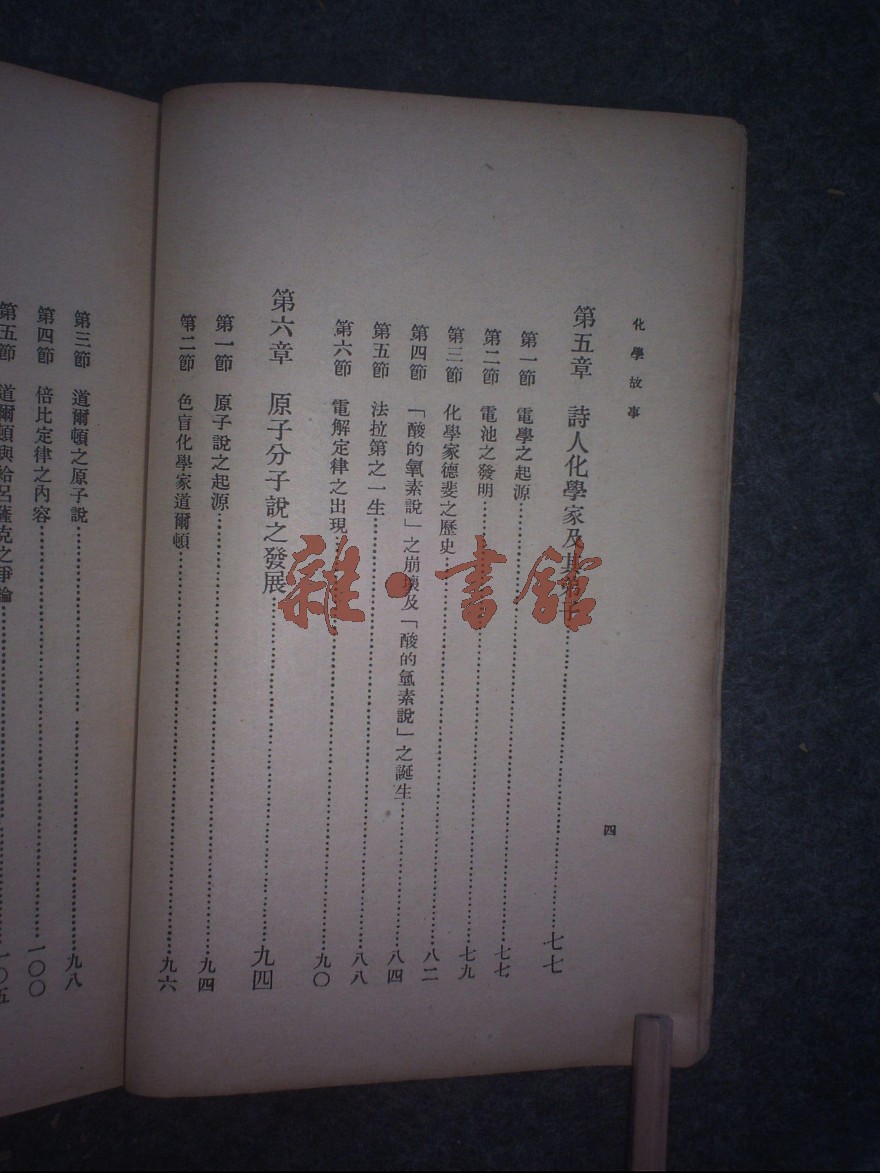 化學故事
四
第五章 詩人化學家及其弟子……七七
第一節 電學之起源……七七
第二節 電池之發明……七九
第三節 化學家德斐之歷史……八二
第四節 「酸的氧素說」之崩壞及「酸的氫素說」之誕生……八四
第五節 法拉第之一生……八八
第六節 電解定律之出現……九〇
第六章 原子分子說之發展……九四
第一節 原子說之起源……九四
第二節 色盲化學家道爾頓……九六
第三節 道爾頓之原子說……九八
第四節 倍比定律之內容……一〇〇
第五節 道爾頓與給呂薩克之爭論……一〇五
雜·書館